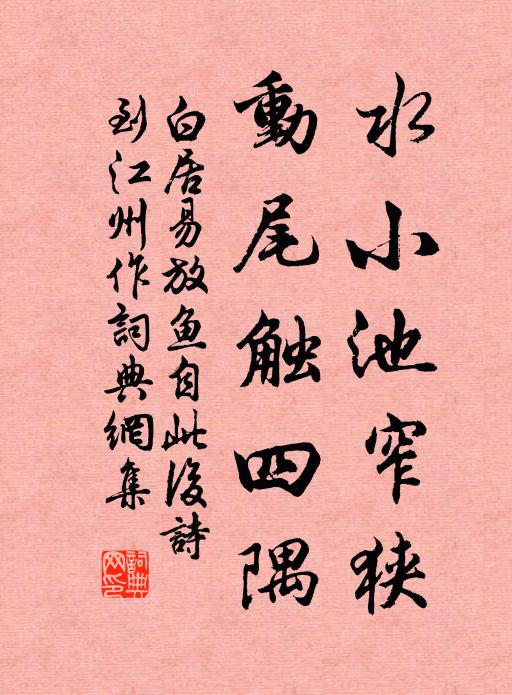 水小池窄狹
動尾触四隅
白居易放鱼自此後詩
到江州作詞典網集
詞典网印